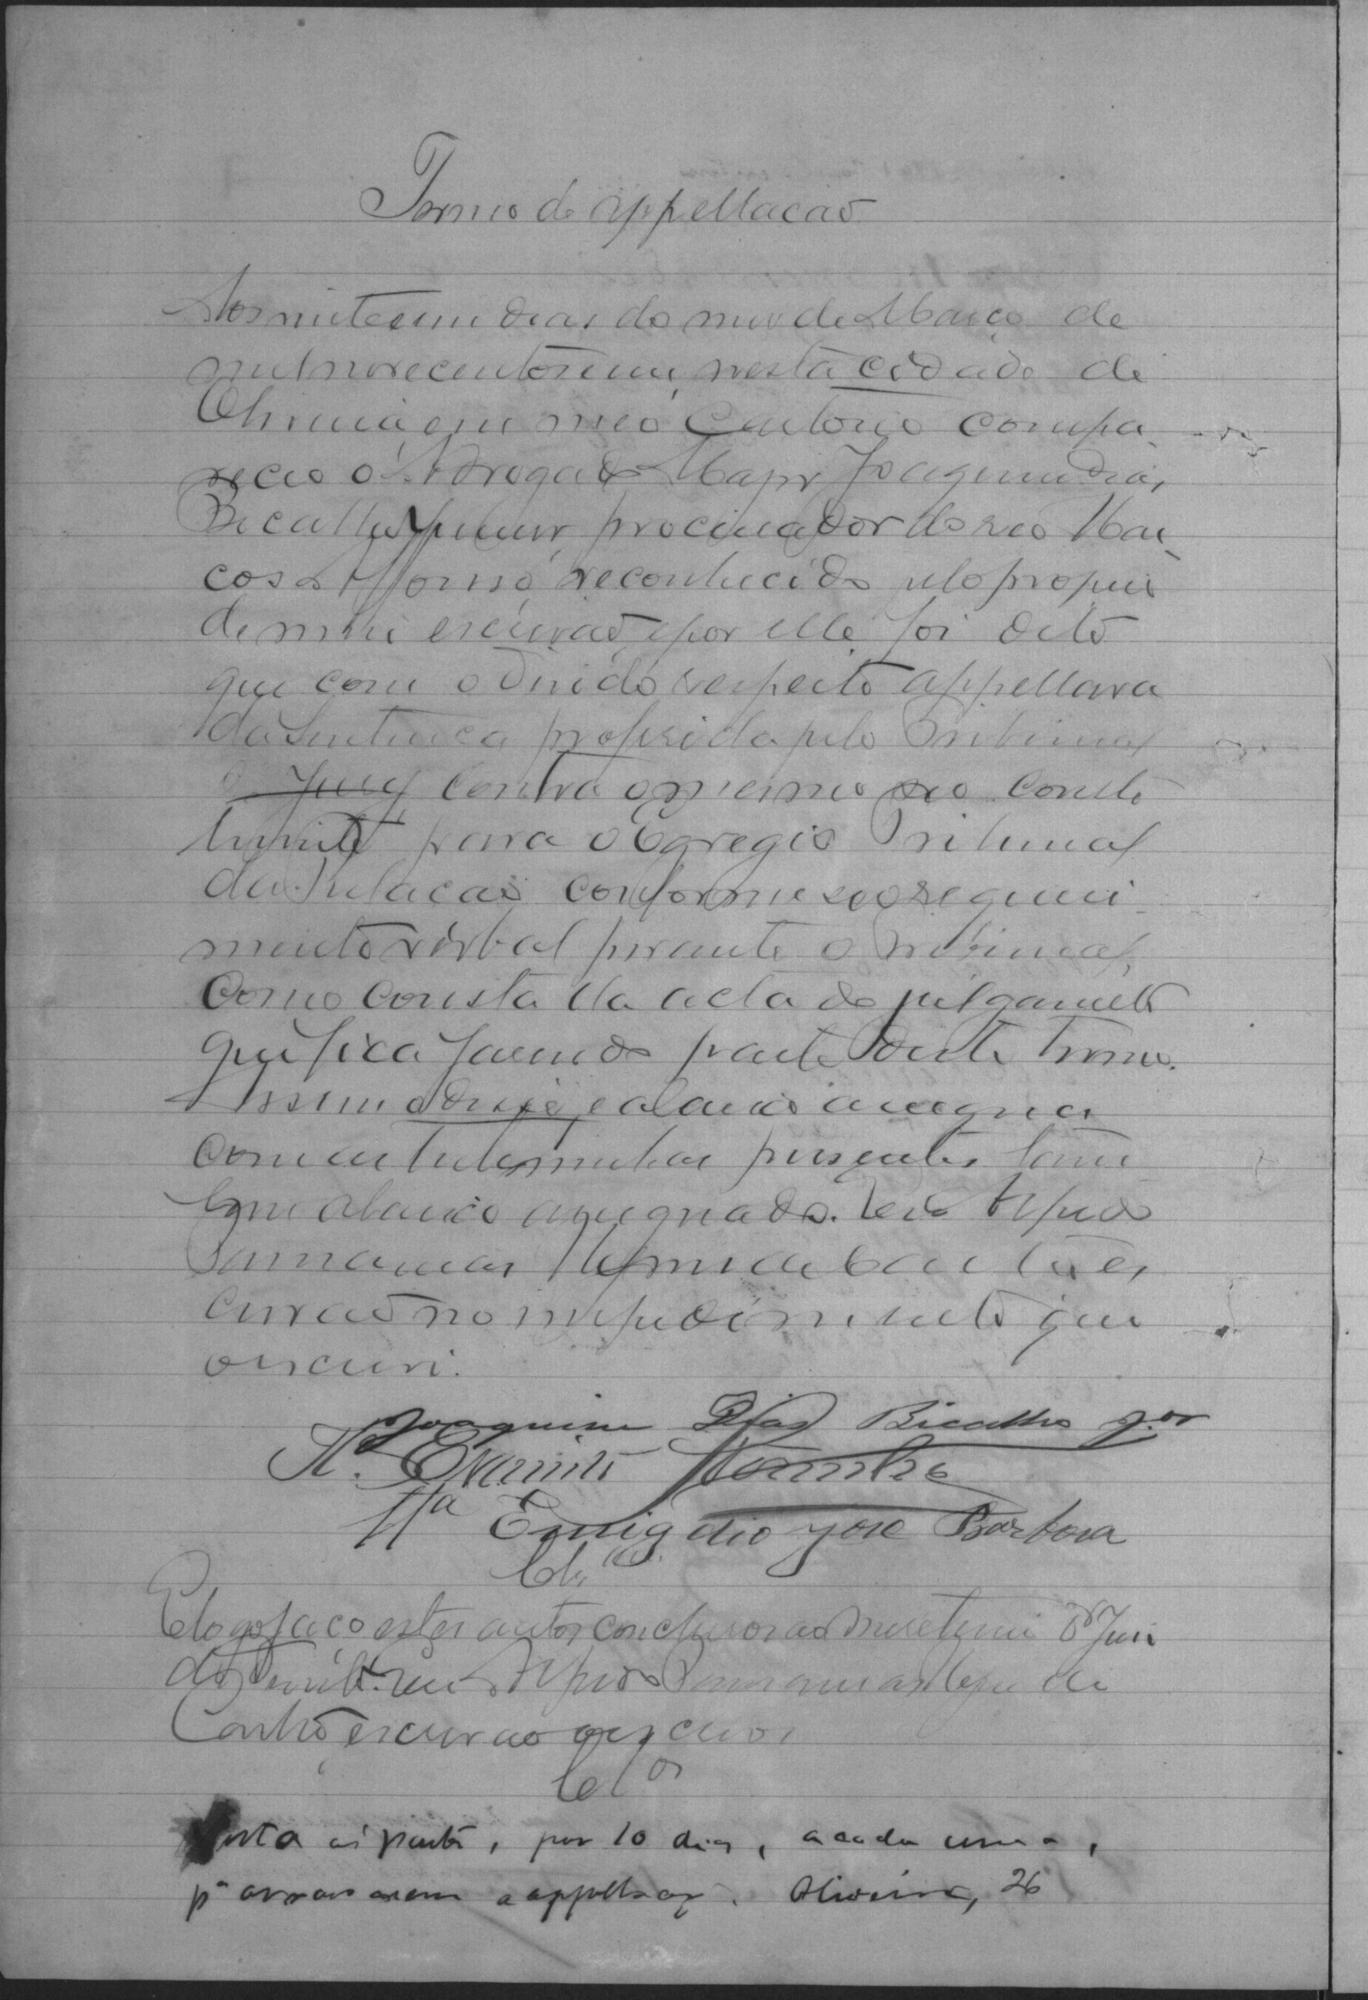 Termo de appellacaõ
Aos vinte e um dias do mez de Março de
mil novecentos e um, nesta cidade de
Oliveira, em meo Cartorio compa-
receo o Advogado Major Joaquim Dias
Bicalho Junior procurador do reo Mar-
cos Affonso, reconhecido pelo proprio
de mim escrivaõ, e por elle foi dito
que com o devido respeito appellava
da sentenca proferida pelo Tribunal
do Jury contra o mesmo seo consti
tuinte para o Egregio Tribunal
da Relacaõ conforme seo requeri-
mento verbal perante o Tribunal,
como consta da acta do julgamento
que fica fazendo parte deste termo.
Assim o disse, e abaixo assigna
com as testemunhas presentes tam
bem abaixo assignado. Eu
escri
vaõ no impedimento que
o escrivi.
Joaquim Dias Bicalho J.or
Tª. Evaristo
Tª Emigdio Jose Barbosa
Cls.
E logo faço estes autos conclusos ao Meretissimo Dr Juiz
de Direito. Eu
Castro escrivaõ o escrevi
Clos
Vista ás partes, por 10 dias, a cada uma,
pª arrasoarem a appellaçaõ. Oliveira, 26